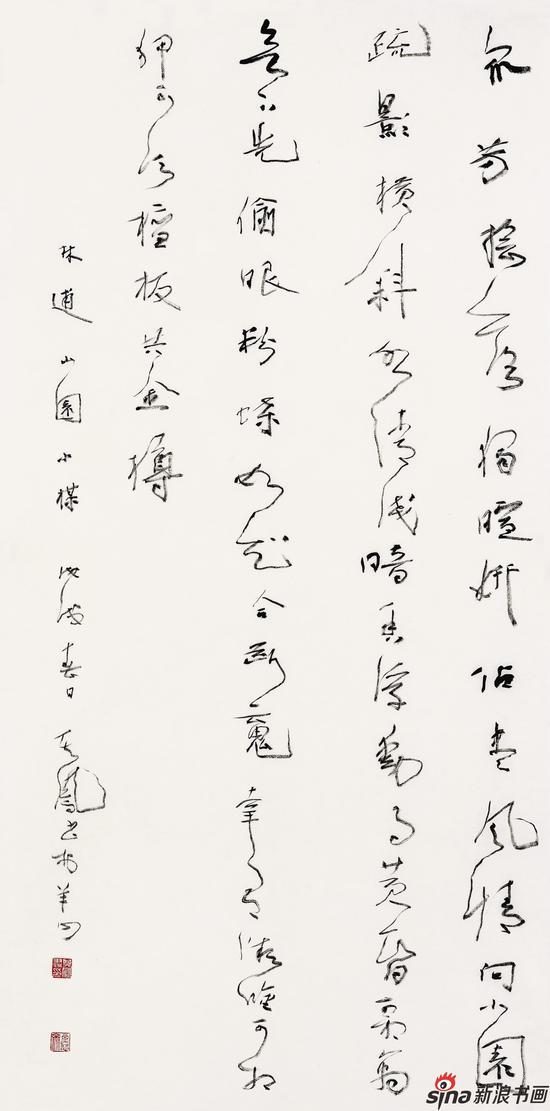 衆芳摇落獨暄妍佔盡風情向小園
疏影横斜水清浅暗香浮動月黄昏霜禽
欲下先偷眼粉蝶如知合断魂幸有微吟可相
狎不須檀板共金樽
林逋山園小楳 戊戌春日 鳳書於羊
sina新浪书画